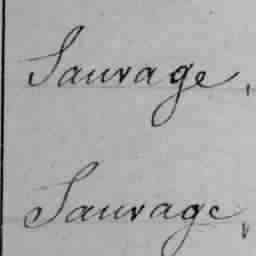 Sauvage,
Sauvage,